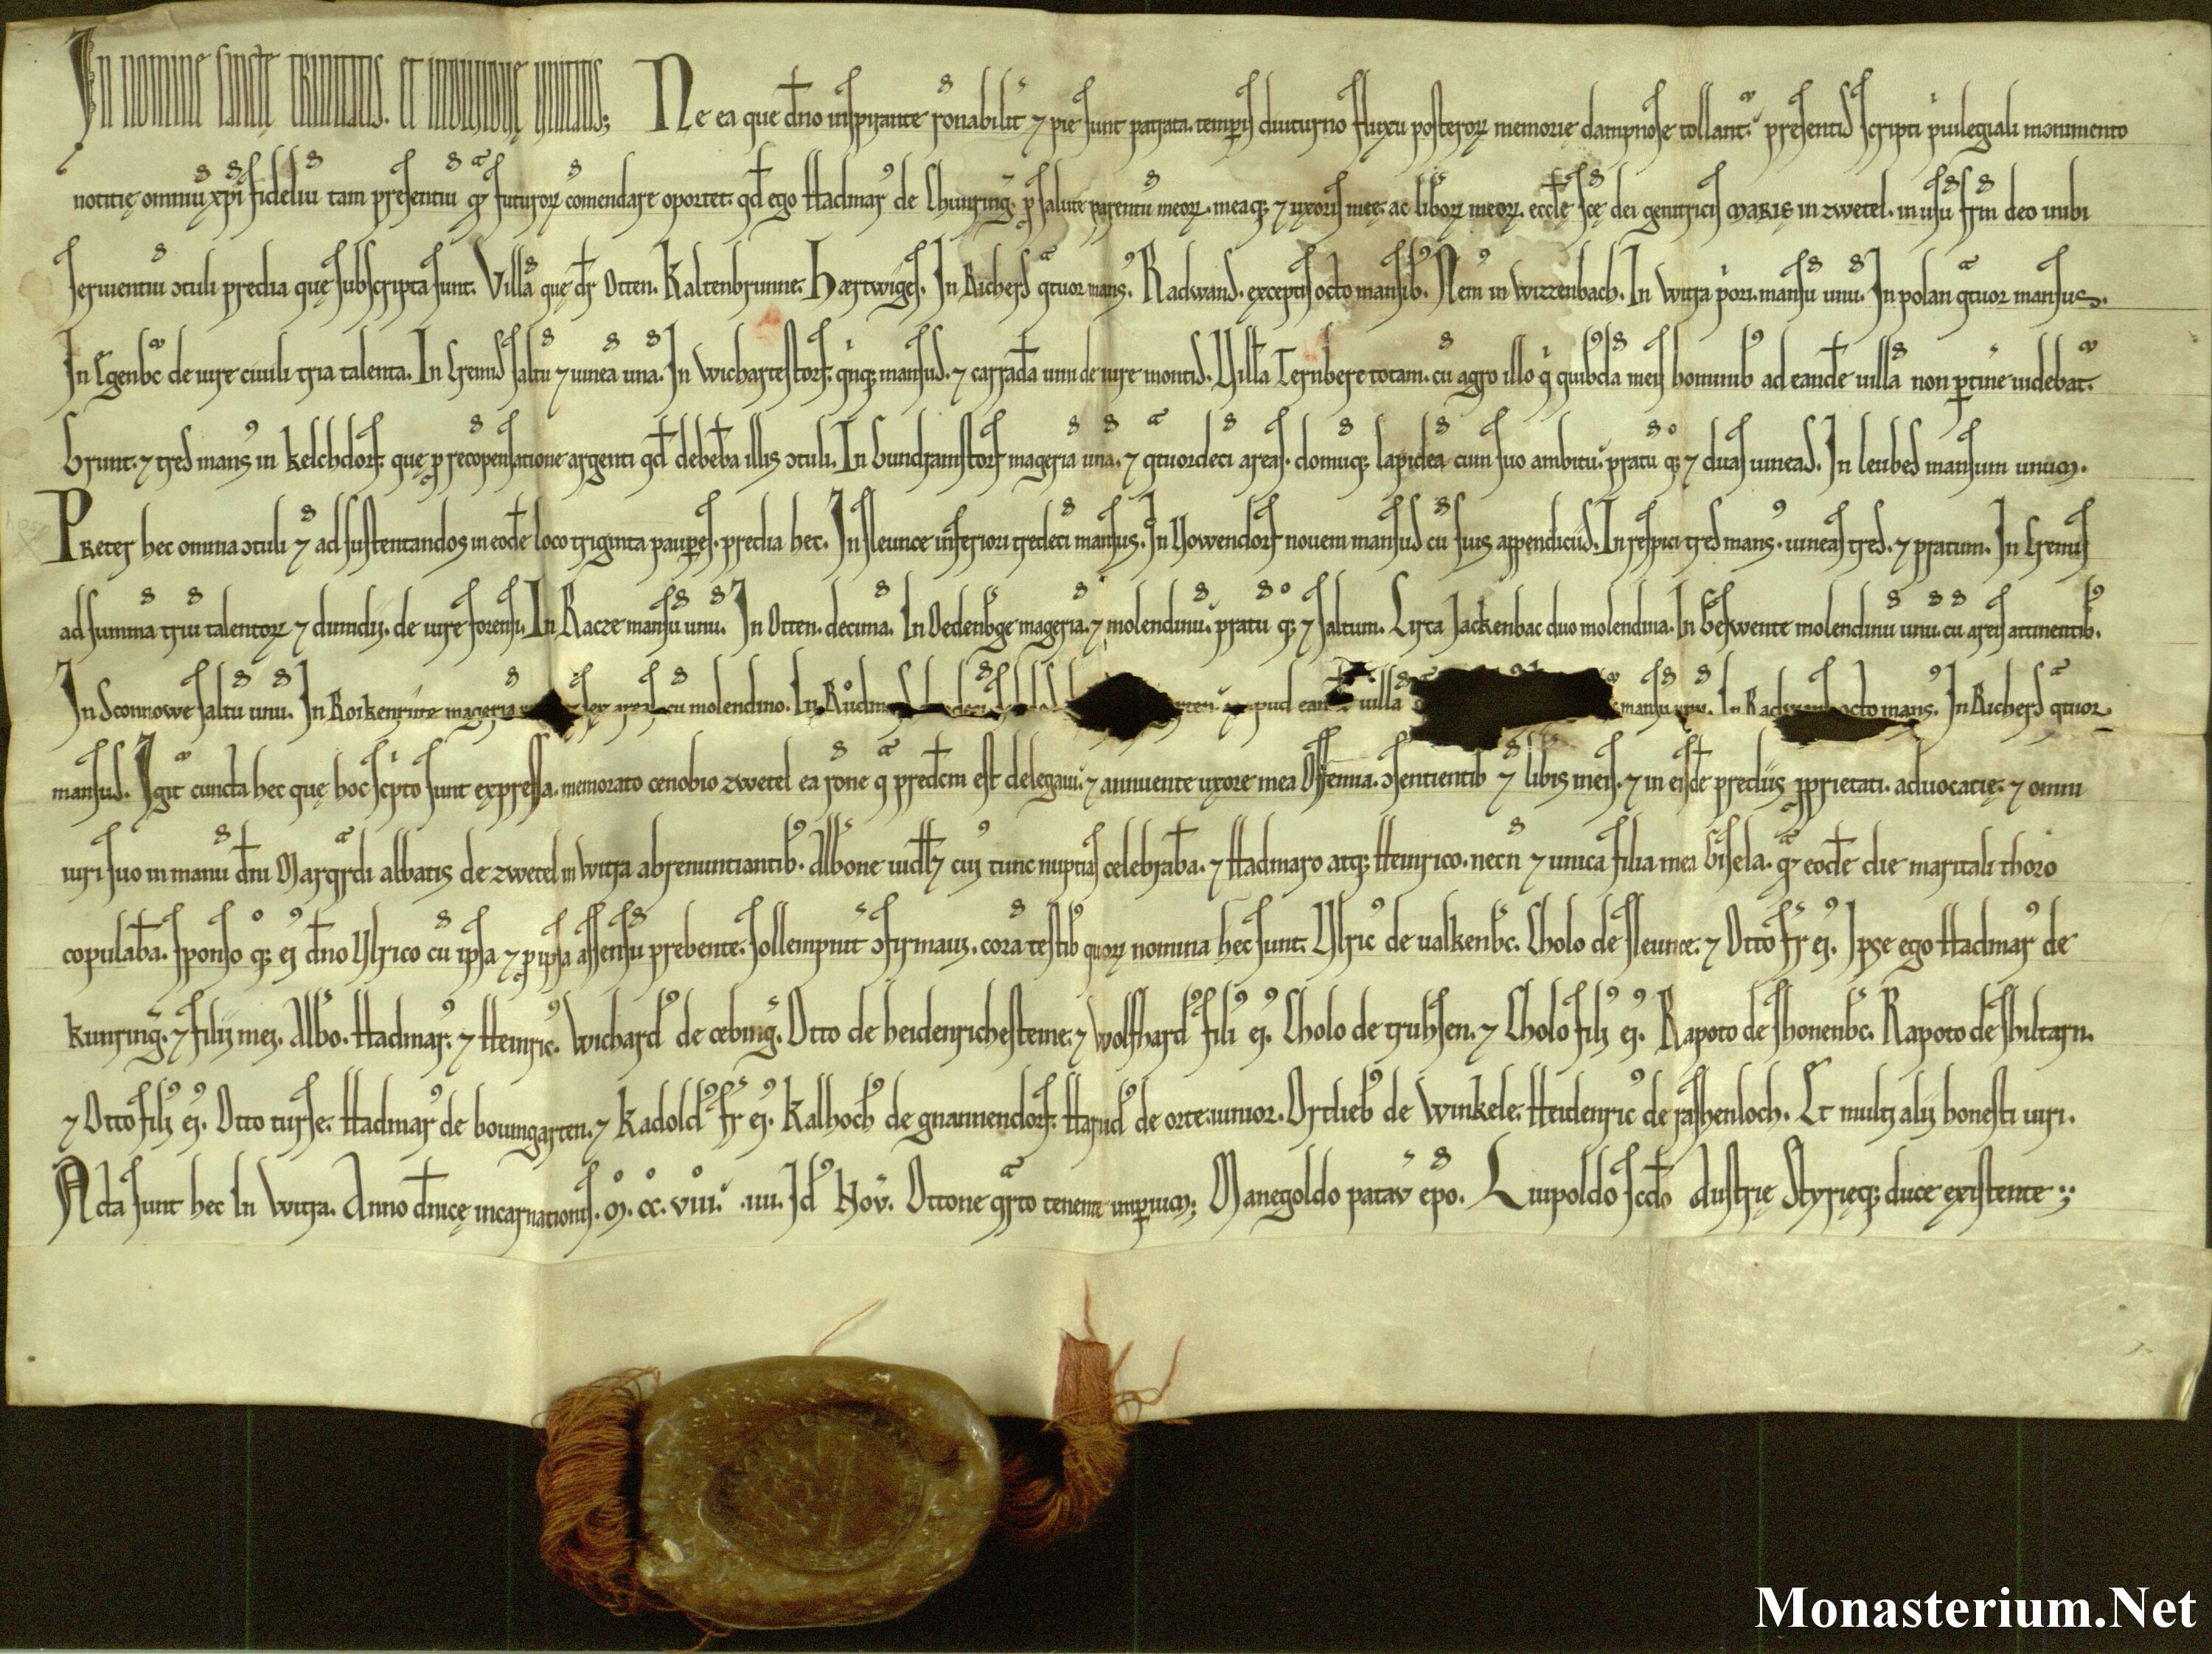 In nomine sancte trinitatis. et individue unitatis; Ne ea que dn̄o inspirante rōnabilit̾ ⁊ pie sunt patrata. temporis diuturno fluxu posteroꝝ memorie dampnose tollant̾. presentis scripti p̾uilegiali monimento
notitię omniū xp̄i fideliū tam presentiū qͣꝫ futuroꝝ cōmendare oportet. qđ ego Hadmar̾ de Chunring̾. ꝓ salute parentū meoꝝ. meaqꝫ ⁊ uxoris mee. ac lib̾oꝝ meoꝝ. eccl̄e sc̄e dei genitricis MARIE in zwetel. in usū fr̄m deo inibi
seruientiū ↄtuli predia quę subscripta sunt. Villā quę dr̄ Otten. Kaltenbrunne. Hertwiges. In Richers qͣtuor mans̾. Radwans. exceptis octo mansib̾. Nem̾ in Wizzenbach. In Witra p̾ori. mansū unū. In polan qͣtuor mansus.
In Egenb̾c de iure ciuili tria talenta. In Crems saltū ⁊ uineā unā. In Wichartestorf. q̾nqꝫ mansus. ⁊ carradā uini de iure montis. Villā Ternbere totam. cū agro illo q̾ quib̾dā meis hominib̾ ad eandē uillā non ꝑtin̾e uidebat̾.
Grunt. ⁊ tres mans̾ in kelchdorf. que ꝓ recōpensatione argenti qđ debebā illis ↄtuli. In Gundramstorf mageriā unā. ⁊ qͣtuordecī areas. domūqꝫ lapideā cum suo ambitu. pratū qꝫ ⁊ duas uineas. In leubes mansum unum.
Preter hec omnia ↄtuli ⁊ ad sustentandos in eodē loco triginta paupes. predia hec. In sleunce inferiori tredecī mansus. In Nowendorf nouem mansus cū suis appendiciis. In respici tres mans̾. uineas tres. ⁊ pratum. In Cremis
ad summā triū talentoꝝ ⁊ dimidij. de iure forensi. In Racze mansū unū. In Otten. decimā. In Oedenb̾ge mageriā. ⁊ molendinū. pratū qꝫ ⁊ saltum. Circa Jackenbac duo molendina. In Geswente molendinū unū. cū areis attinentib̾.
In Sconnowe saltū unū. In Roikenriute mageriā sex areas cū molendino. In Rudm apud eandē uillā mansū unū. In Radwans octo mans̾. In Richers qͣtuor
mansus. Igit̾ cuncta hec quę hoc sc̾pto sunt expressa. memorato cenobio zwetel ea rōne qͣ predc̄m est delegaui. ⁊ annuente uxore mea Offemia. ↄsentientib̾ ⁊ lib̾is meis. ⁊ in eisdē prediis ꝓprietati. aduocatię. ⁊ omni
iuri suo in manū dn̄i Marqͣrdi abbatis de zwetel in witra abrenuntiantib̾. Alb̾one uidelꝫ cui̾ tunc nuptias celebrabā. ⁊ Hadmaro atqꝫ Heinrico. necn̄ ⁊ unica filia mea Gisela. qͣꝫ eodē die maritali thoro
copulabā. sponso qꝫ ei̾ dn̄o Vlrico cū ipsa ⁊ ꝓ ipsa assensū prebente. sollempnit̾ ↄfirmaui. corā testib̾ quoꝝ nomina hec sunt. Vlric̾ de ualkenb̾c. Cholo de sleunce. ⁊ Otto fr̄ ei̾. Ipse ego Hadmar̾ de
kunring̾. ⁊ filij mei. Alb̾o. Hadmar̾. ⁊ Heinric̾. Wichard̾ de cebing̾. Otto de heidenrichesteine. ⁊ Wolfhard̾ fili̾ ei̾. Cholo de truhsen. ⁊ Cholo fili̾ ei̾. Rapoto de shonenb̾c. Rapoto de shiltarn.
⁊ Otto fili̾ ei̾. Otto turse. Hadmar̾ de boumgarten. ⁊ Kadold̾ fr̄ ei̾. Kalhoch̾ de gnannendorf. Harnid̾ de orte iunior. Ortlieb̾ de Winkele. Heidenric̾ de rashenloch. Et multi alij honesti uiri.
Acta sunt hec In Witra. Anno dn̄icę incarnationis. M̊. CC̊. VIII̊. .IIII. Id̾ Nov̾. Ottone qͣrto tenente imꝑium; Manegoldo patav̾ ep̄o. Liupoldo sc̄do Austrię Styrięqꝫ duce existente
Monasterium.Net